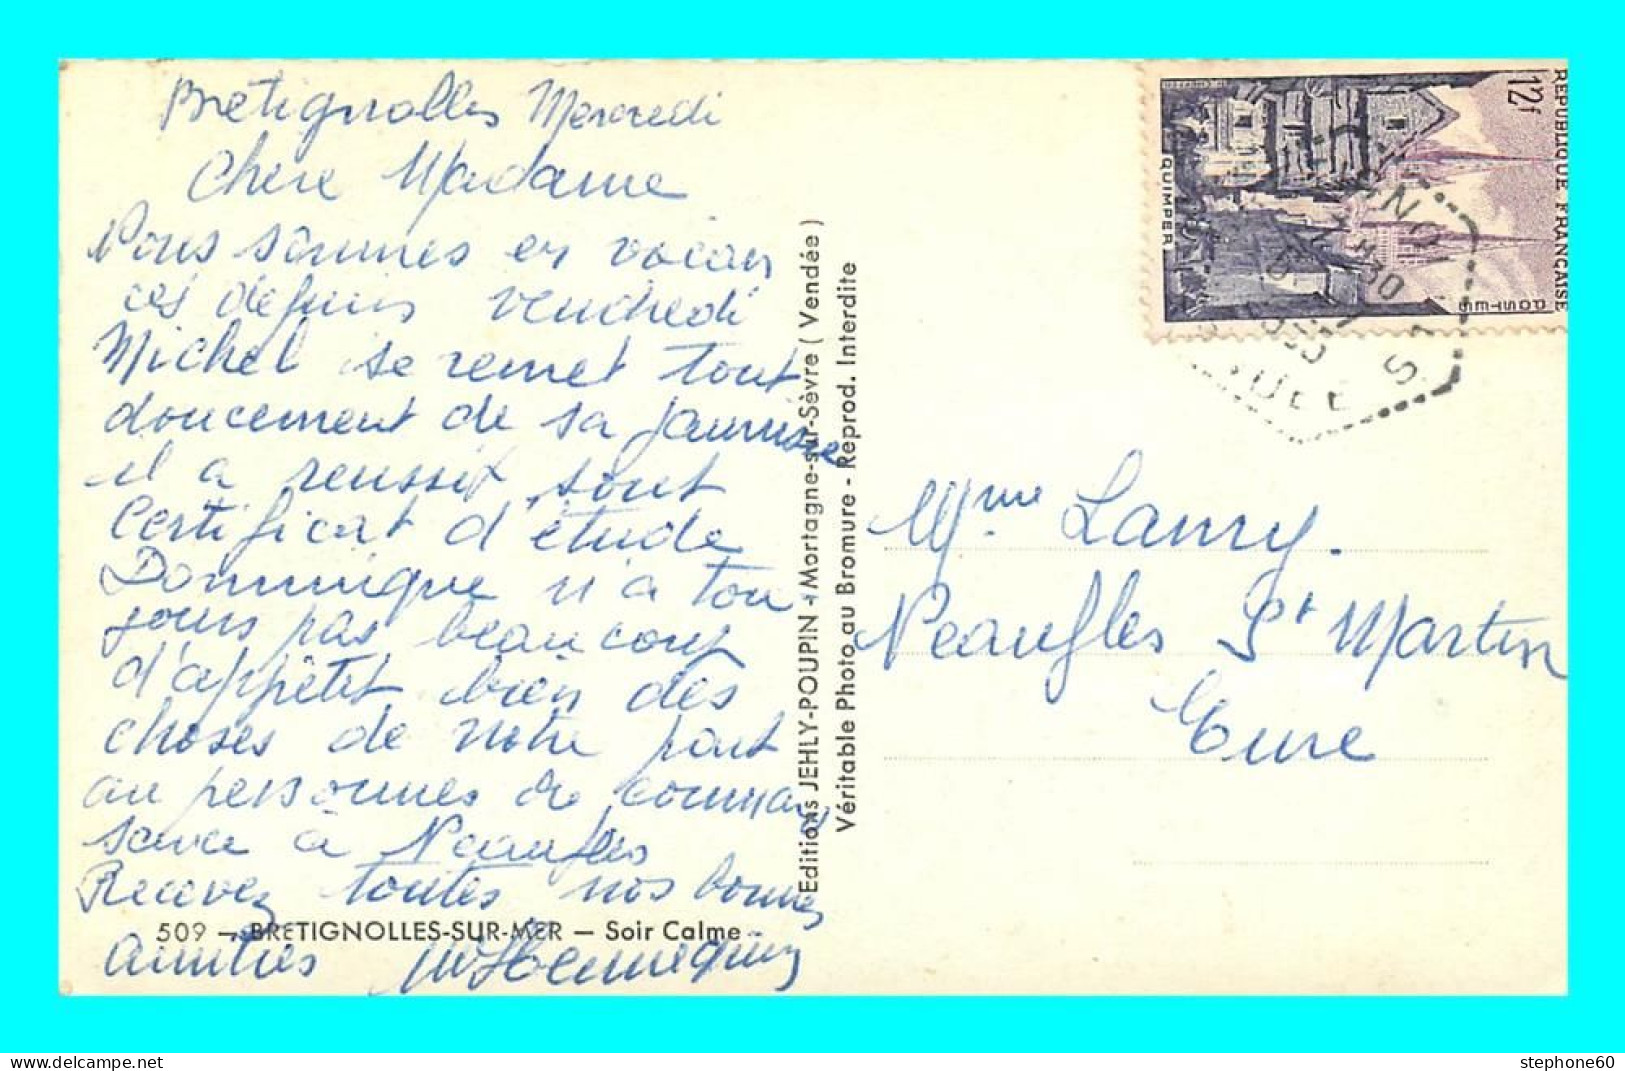 Bretignolles Mercredi
Chere Madame
Nous sommes en vacan
ces depuis vendredi
Michel se remet tout
doucement de sa jaunisse
il a reussit sont
Certificat d'étude
Dominique n'a tou
jours pas beaucoup
d'appêtit bien des
choses de notre part
au personnes de connais
sance à Neaufles
Recevez toutes nos bonnes
amitiés
509 — BRETIGNOLLES-SUR-MER — Soir Calme
Editions JEHLY-POUPIN - Mortagne-sur-Sèvre ( Vendée )
Véritable Photo au Bromure - Reprod. Interdite
12f
REPUBLIQUE FRANÇAISE
POSTES
QUIMPER
Mme Lamy.
Neaufles St Martin
Eure
stephone60